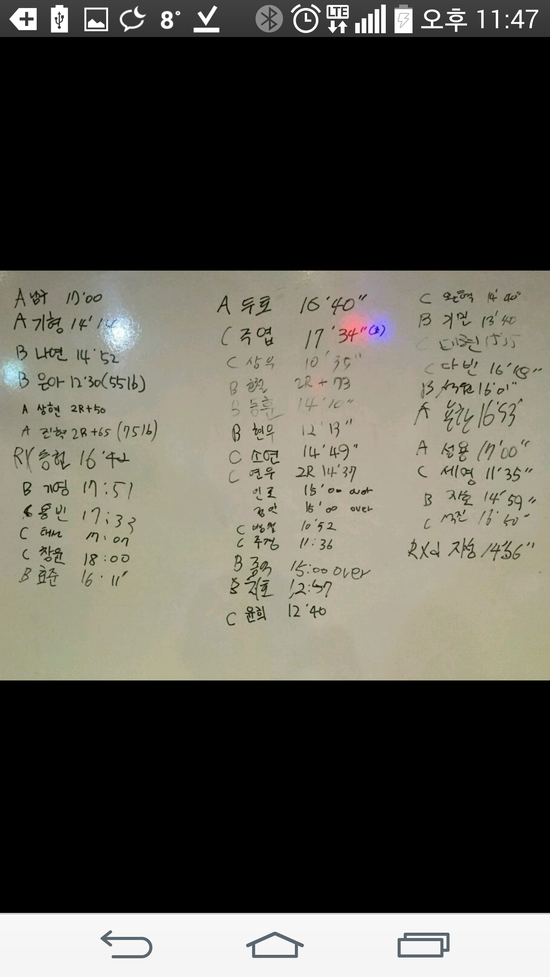 8° LTE 오후 11:47
A 17'00
A 기형 14'14
B 나연 14'52
B 은아 12'30(55lb)
A 상현 2R+50
A 진혁 2R+65 (75lb)
RX 승현 16'42
B 기영 17:51
용빈 17:33
C 17:07
C 창윤 18:00
B 효준 16'11"
A 두로 16'40"
C 국엽 17'34"
C 상우 10'35"
B 2R + 73
B 동훈 14'10"
B 현우 12'13"
C 소연 14'49"
C 연우 2R 14'37
15'00 over
15'00 over
C 10'52
C 주경 11:36
B 15:00 over
B 지호 12:57
C 윤희 12'40
C 14'40"
B 기민 13'40
C 15'15
C 다빈 16'48"
B 16'01"
A 16'53"
A 성용 17'00"
C 세영 11'35"
B 14'59"
C 13'50"
RXd 지송 14'56"